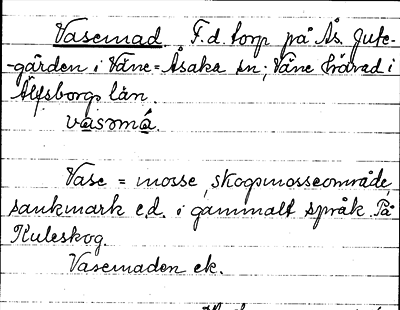 Vasemad. F.d. torp på Ås. Jute-
-gården i Väne=Åsaka sn; Väne härad i
Älfsborgs län.
vasəmá.
Vase = mosse, skogsmosseområde,
sankmark e.d. i gammalt språk. På
Kuleskog.
Vasemaden ek.